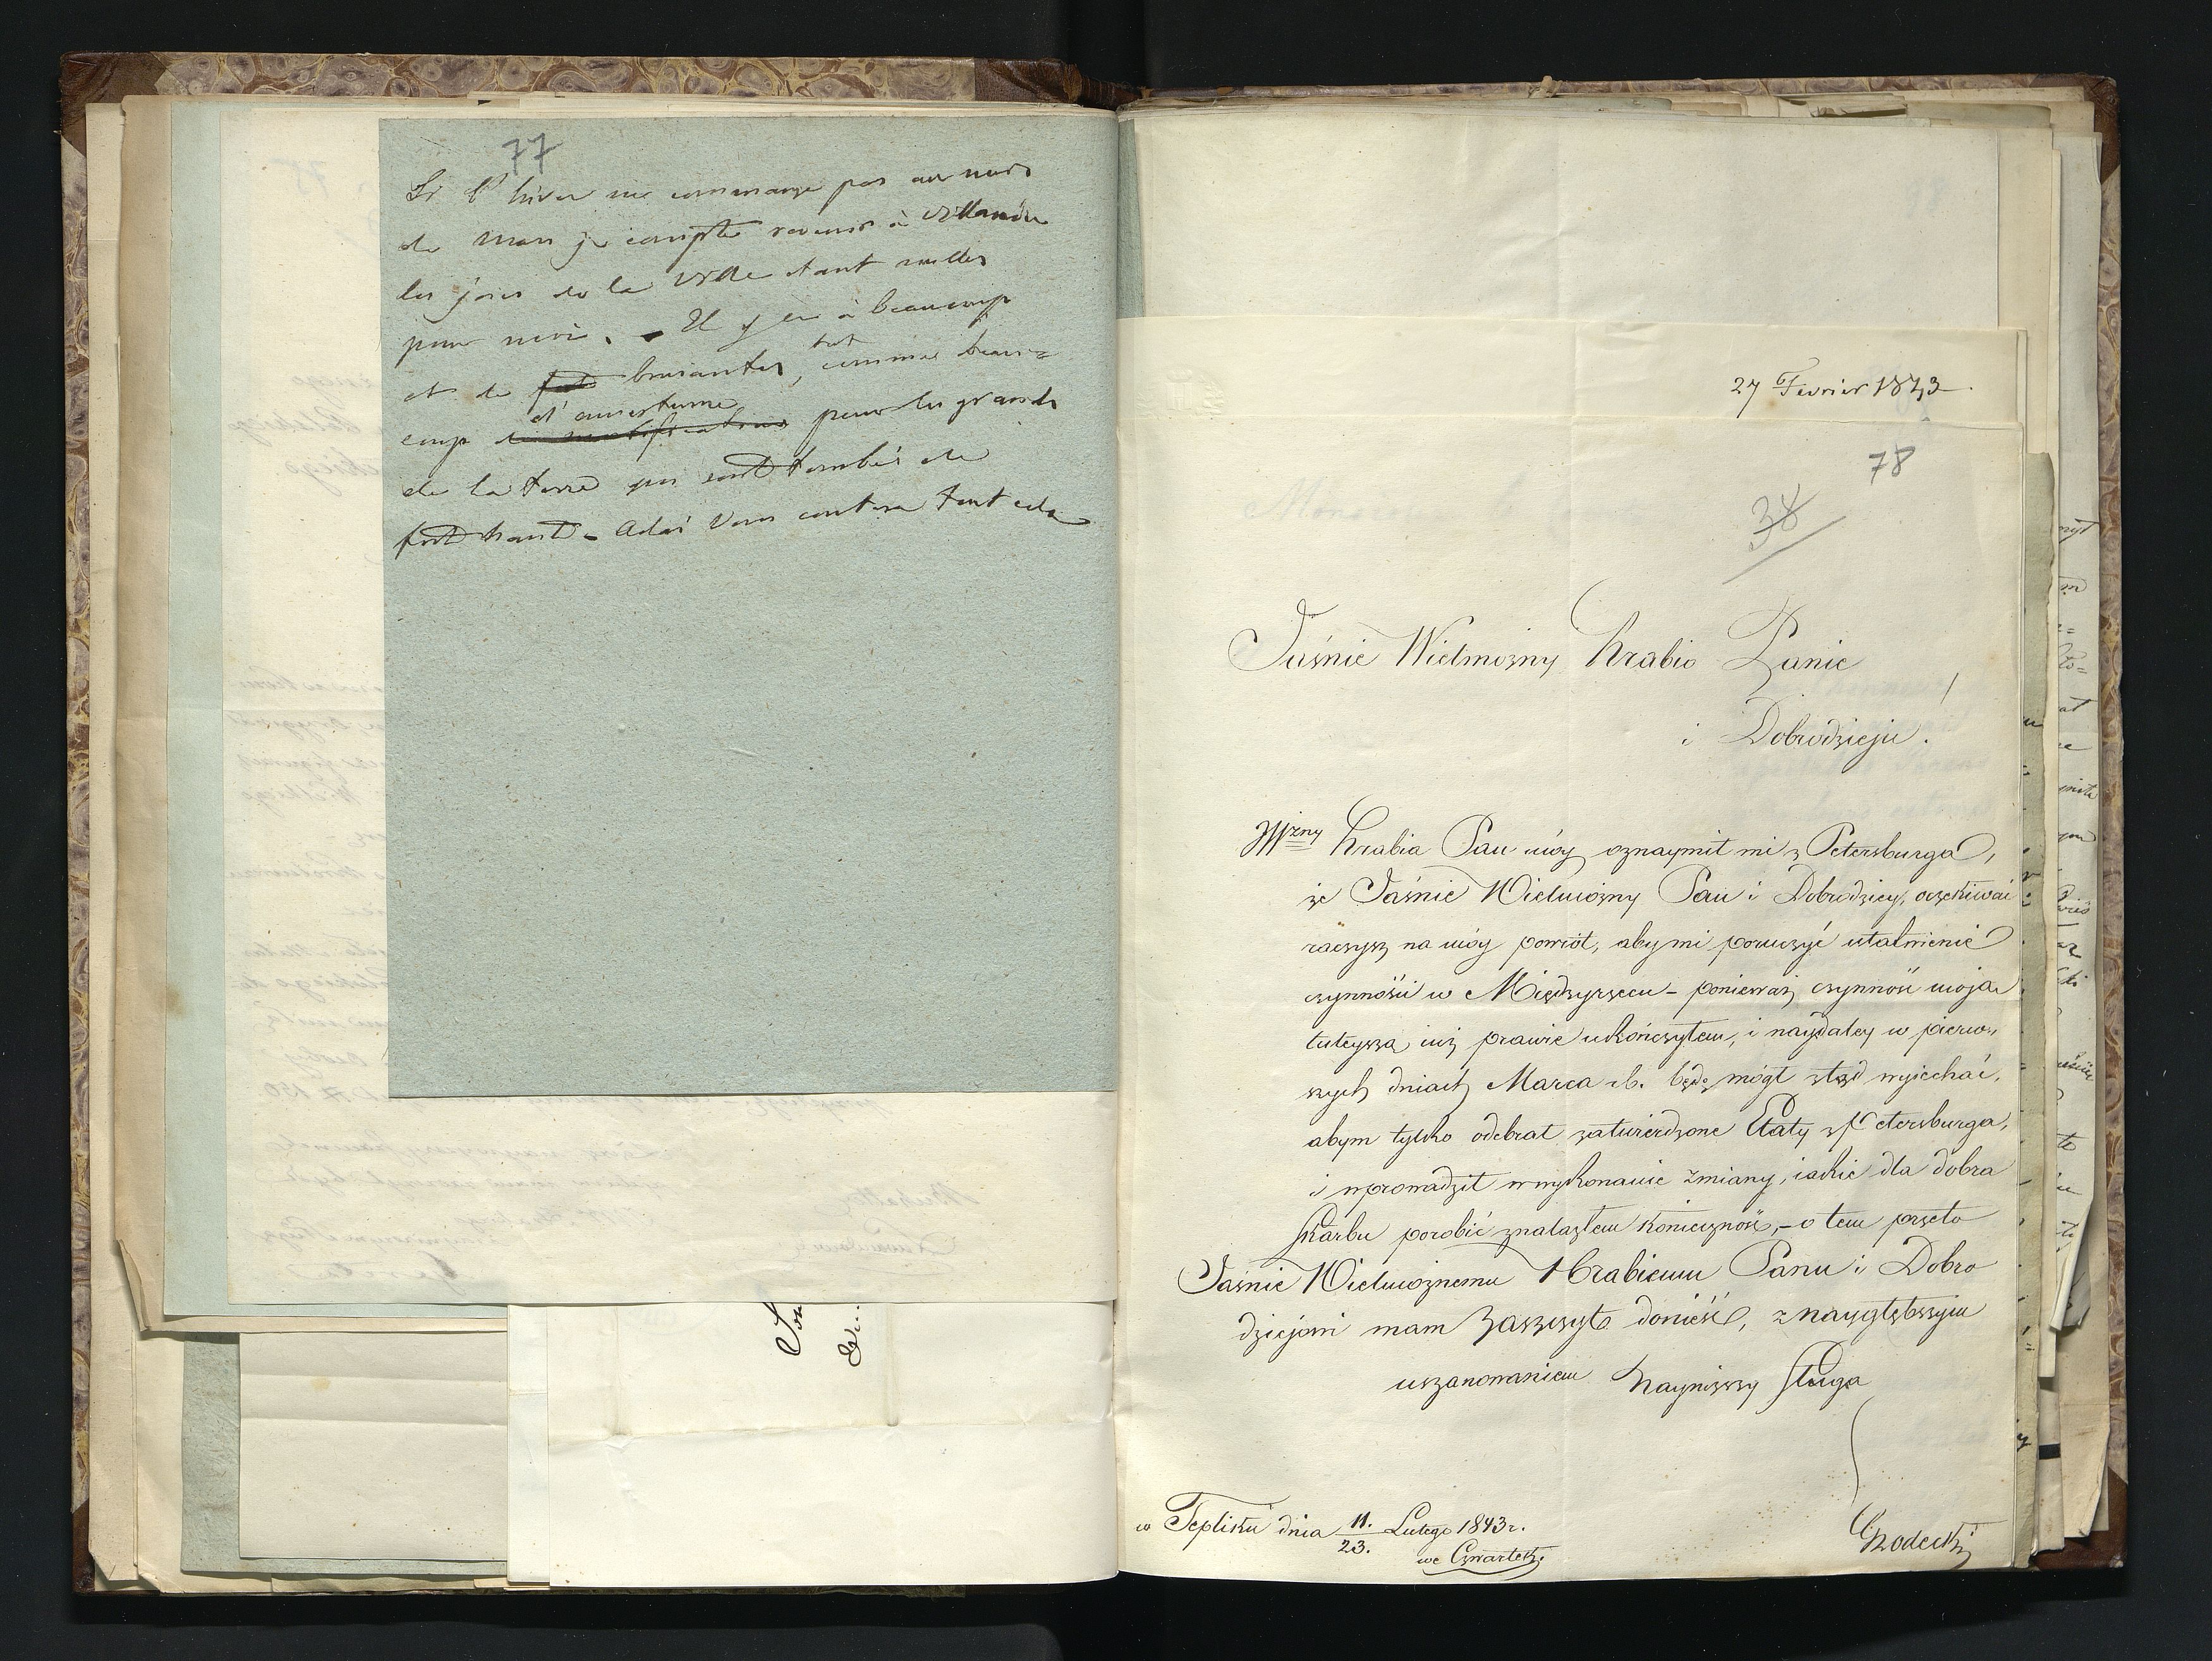 77
Si l'hiver ne commence pas au mois
de Mars je compte revenir à Willanów
les joies de la Ville étant nulles
pour moi. - Il y en a beaucoup
et de bruiantes, tout comme beau=
coup d'amertume pour les grands
de la terre qui sont tombés de
fort haut - Adaś Vous contera tout cela
27 Fevrier 1843.
78
38
Jaśnie Wielmożny Hrabio Panie
i Dobrodzieju!
JWżny Hrabia Pan móy oznaymił mi z Petersburga,
że Jaśnie Wielmożny Pan i Dobrodziey, oczekiwać
raczysz na móy powrót, aby mi poruczyć ułatwienie
czynności w Międzyrzecu - ponieważ czynność moją
tuteyszą iuż prawie ukończyłem, i naydaley w pierw=
szych dniach Marca r.b. będę mógł ztąd wyiechać,
abym tylko odebrał zatwierdzone Etaty z Petersburga,
i wprowadził w wykonanie zmiany, iakie dla dobra
Skarbu porobić znalazłem konieczność, - o tem przeto
Jaśnie Wielmożnemu Hrabiemu Panu i Dobro
dziejowi mam zaszczyt donieść, z naygłębszym
uszanowaniem Nayniższy Sługa
w Tepliku dnia 11./23. Lutego 1843 r.
we Czwartek.
Grodecki